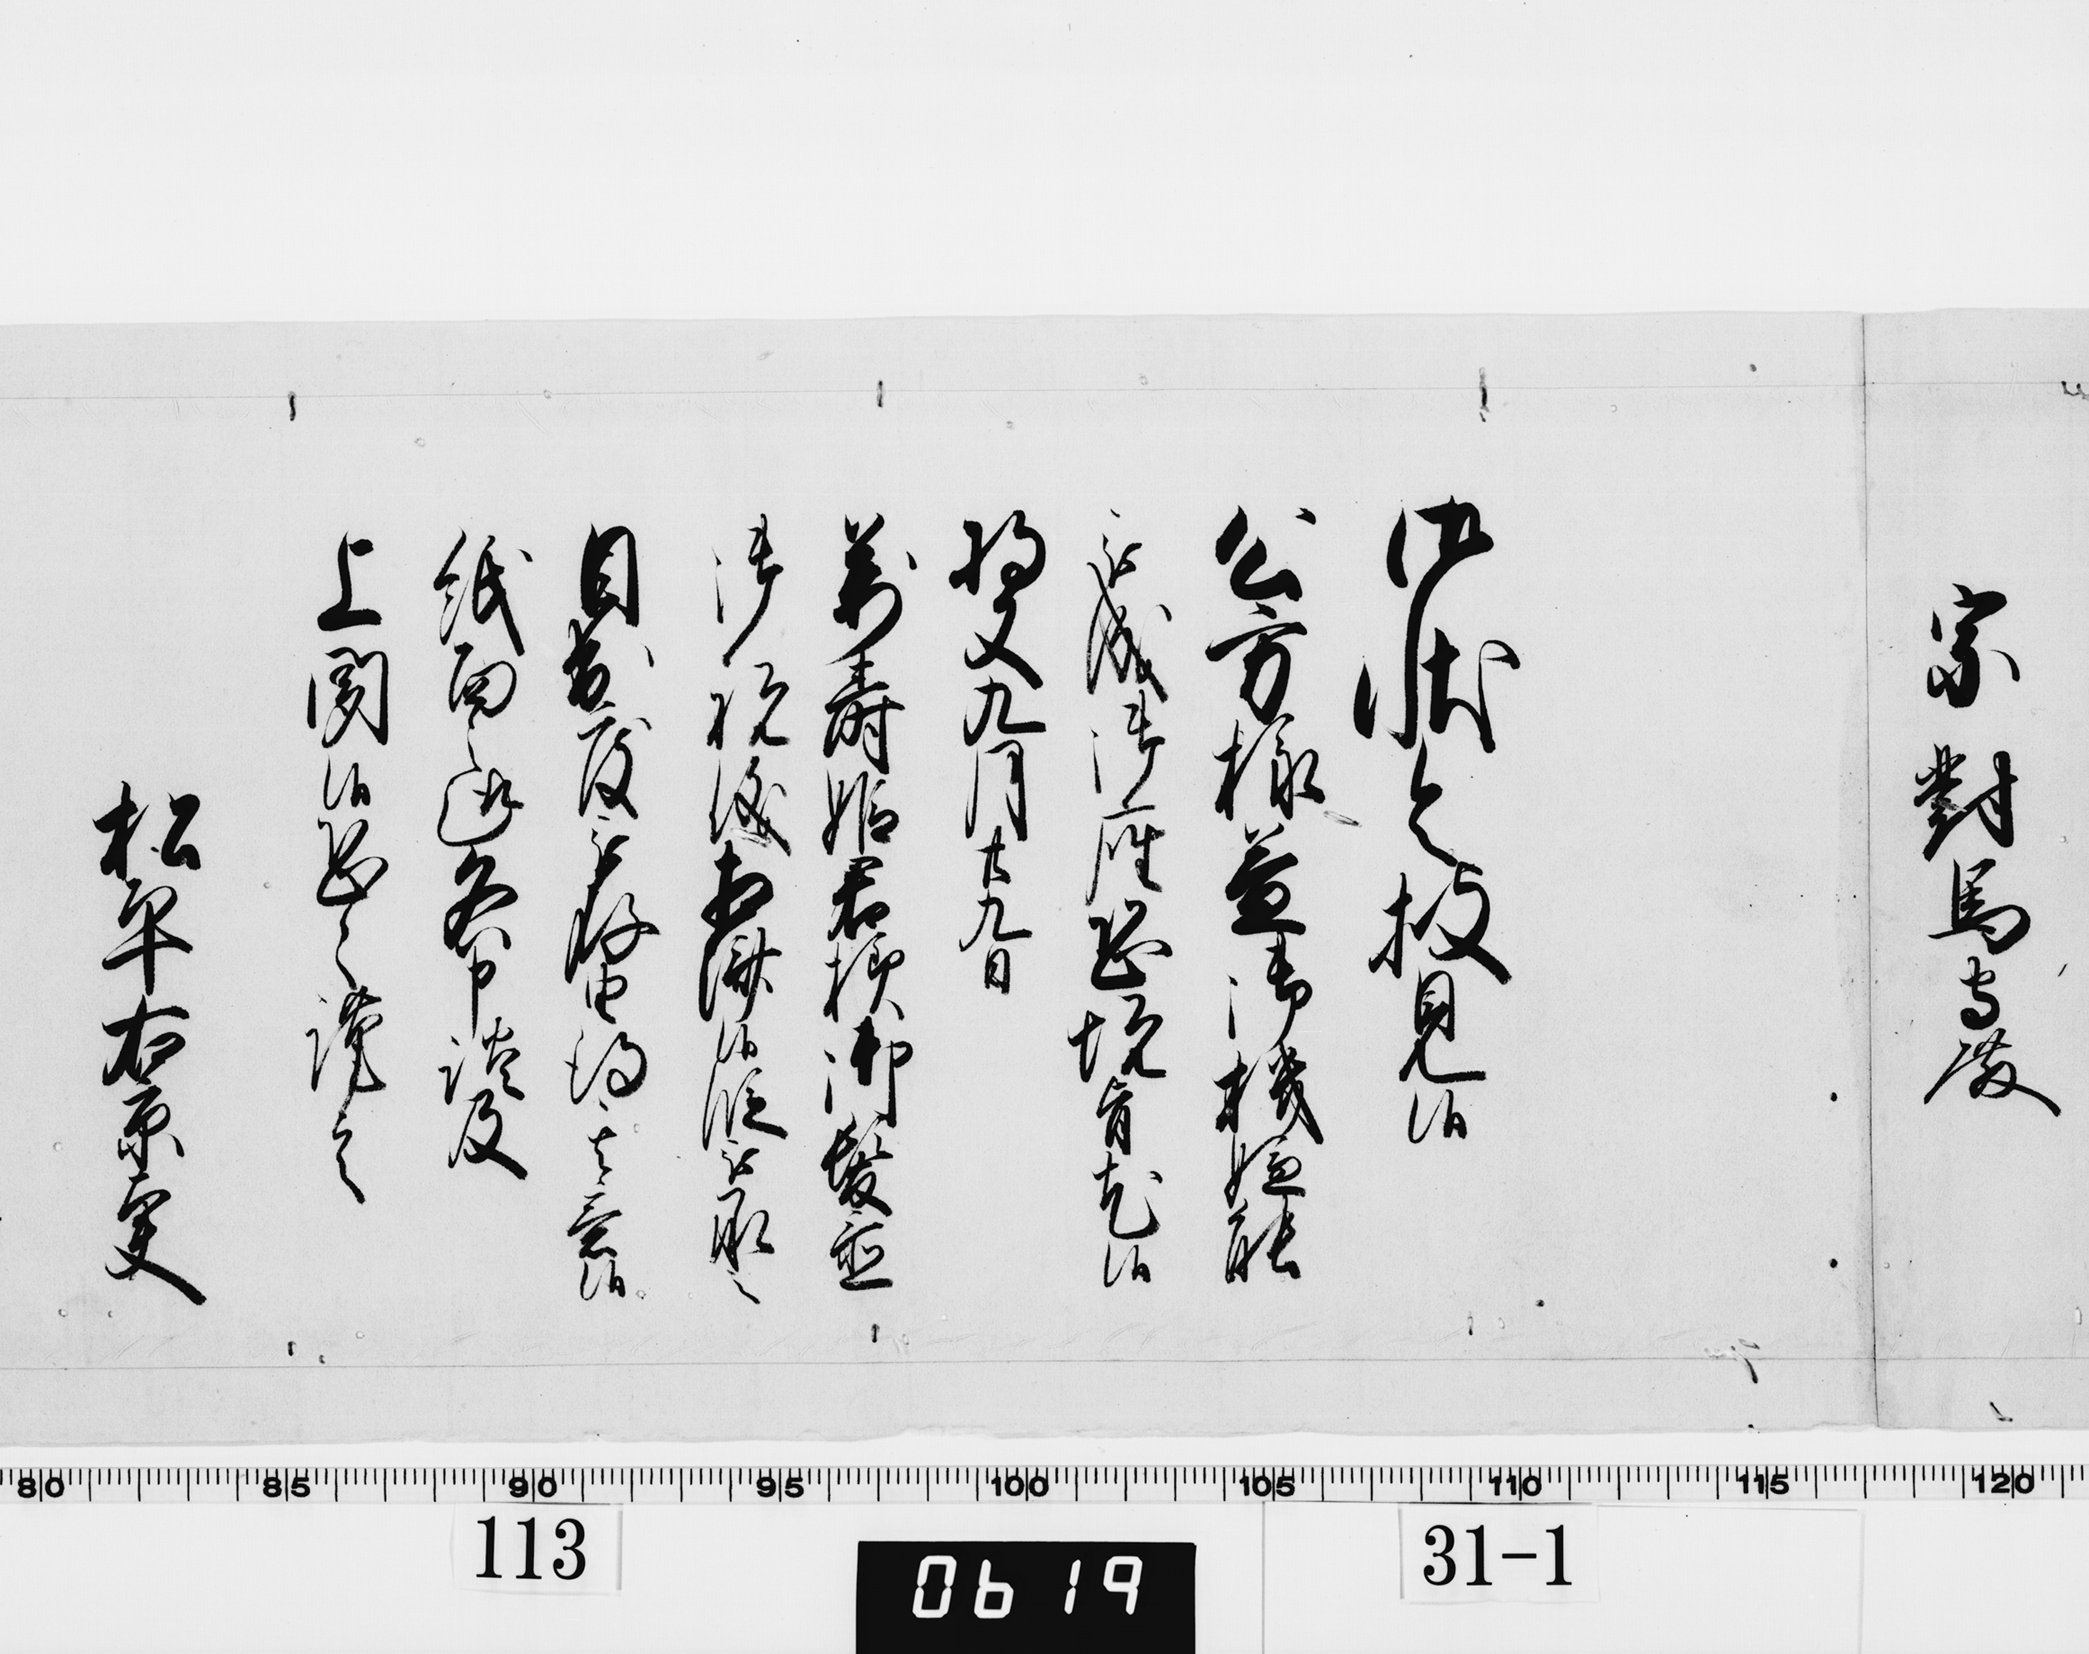 宗對馬守殿
御状令披見候
公方様益御機嫌能
被成御座恐悦旨尤候
将又九月廿九日
萬壽姫君様御髪置
御祝儀相濟候段被承之
目出度被存由得其意候
紙面之趣各申談及
上聞候恐々謹言
松平右京大夫
80 85 90 95 100 105 110 115 120
113
0619
31-1